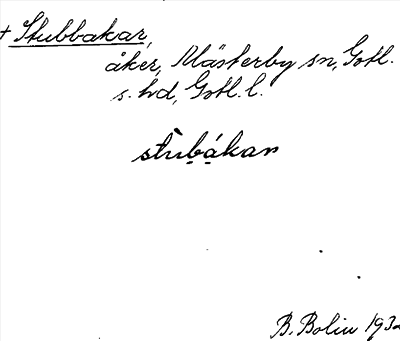 + Stubbakar,
åker, Mästerby sn, Gotl.
s. hd, Gotl. l.
stùbákar
B. Bolin 193